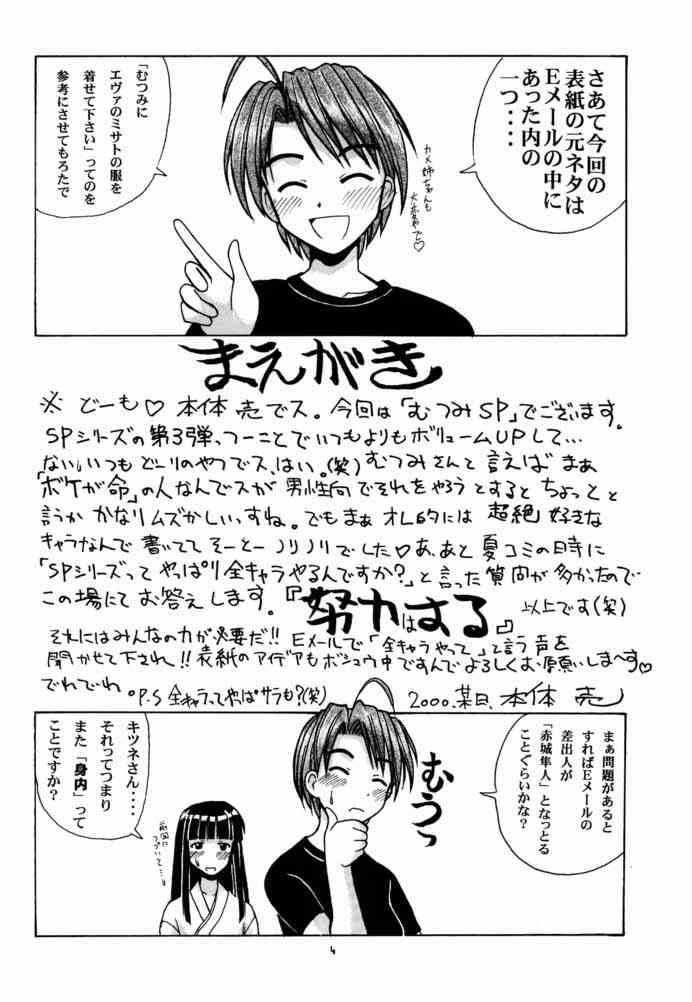 さあて今回の
表紙の元ネタは
Eメールの中に
あった内の
一つ・・・
カメ姉ちゃんも
大変やで♡
「むつみに
エヴァのミサトの服を
着せて下さい」ってのを
参考にさせてもろたで
まえがき
※どーも♡本体 売でス。今回は「むつみSP」でございます。
SPシリーズの第3弾、つーことでいつもよりもボリュームUPして…
ない。いつもどーりのやつでス、はい。(笑)むつみさんと言えばまあ
「ボケが命」の人なんでスが男性向でそれをやろうとするとちょっと
言うかかなりムズかしいっすね。でもまぁオレ的には超絶好きな
キャラなんで書いててそーとーノリノリでした♡あ、あと夏コミの時に
「SPシリーズってやっぱり全キャラやるんですか?」と言った質問が多かったので
この場にてお答えします。『努力はする』以上です(笑)
それにはみんなの力が必要だ!!Eメールで「全キャラやって」と言う声を
聞かせて下され!!表紙のアイデアもボシュウ中ですんでよろしくお願いしま〜す♡
でわでわ。P.S 全キャラってやっぱサラも?(笑) 2000.某日、本体 売
まぁ問題があると
すればEメールの
差出人が
「赤城隼人」となっとる
ことぐらいかな?
むうっ
キツネさん・・・・
それってつまり
また「身内」って
ことですか?
前回に
つづいて…
4